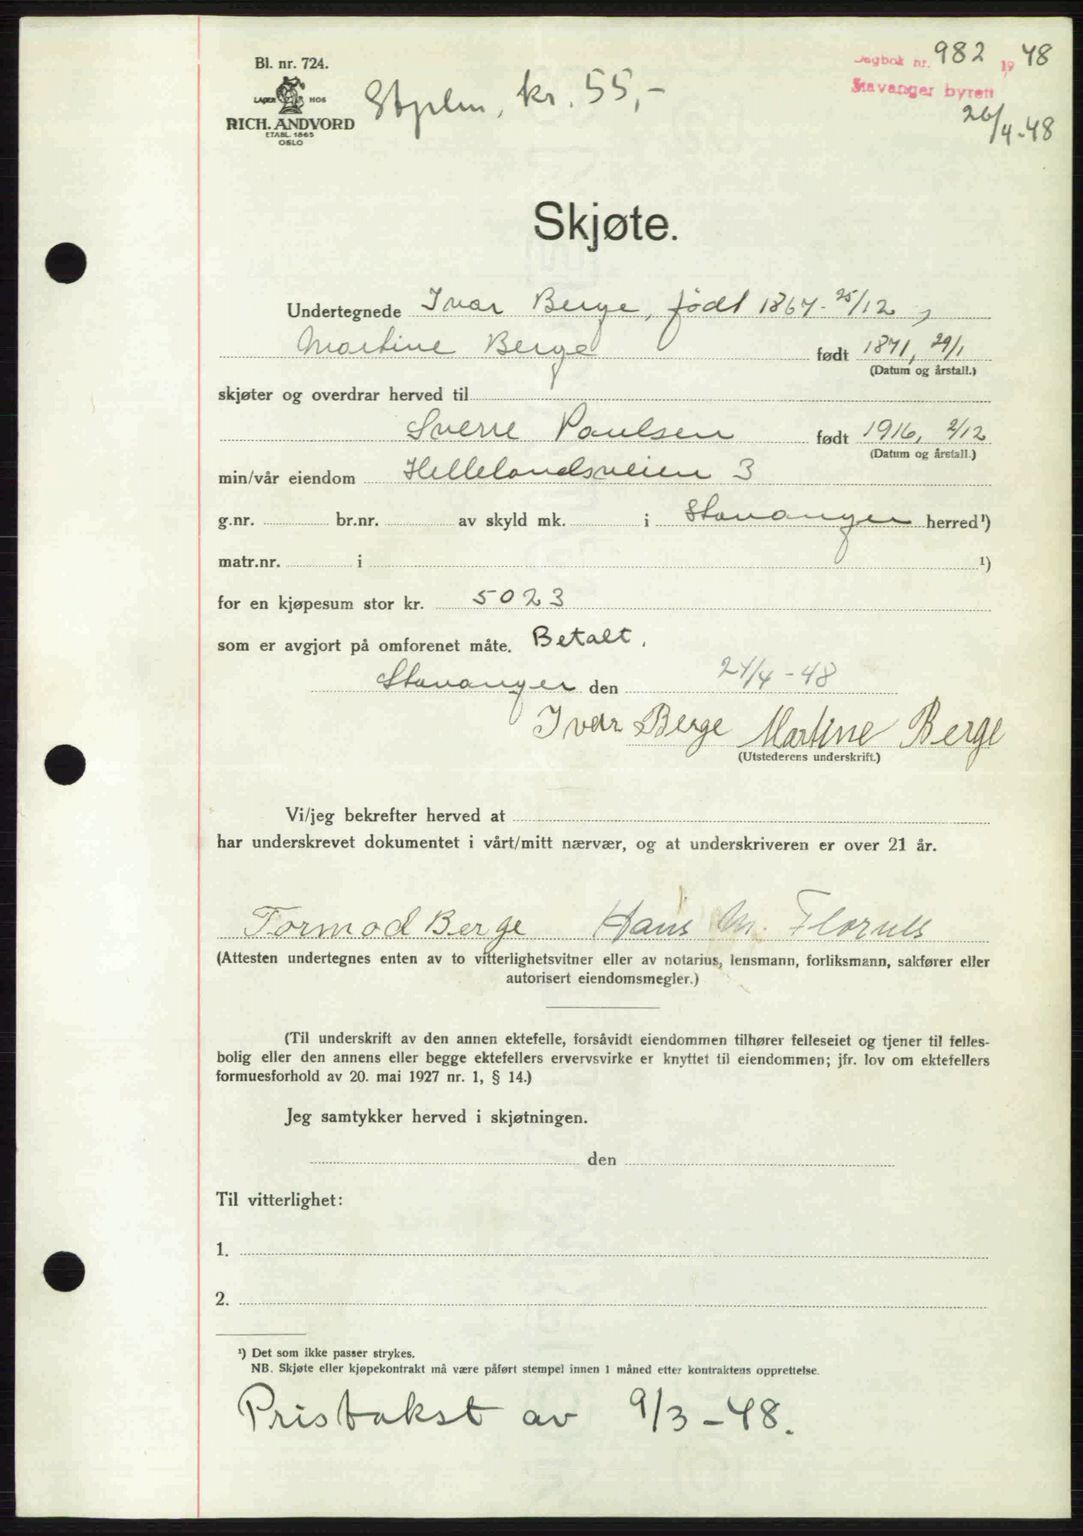 Bl. nr. 724.
LAGER HOS
RICH. ANDVORD
ETABL. 1865
OSLO
Stplm, kr. 55,-
Dagbok nr. 982 19 48
Stavanger byrett
26/4-48
Skjøte.
Undertegnede Ivar Berge, født 1867-25/12,
Martine Berge født 1871, 29/1
(Datum og årstall.)
skjøter og overdrar herved til
Sverre Paulsen født 1916, 2/12
(Datum og årstall.)
min/vår eiendom Hellelandsveien 3
g.nr. br.nr. av skyld mk. i Stavanger herred¹)
matr.nr. i ¹)
for en kjøpesum stor kr. 5023
som er avgjort på omforenet måte. Betalt.
Stavanger den 24/4-48
Ivar Berge Martine Berge
(Utstederens underskrift.)
Vi/jeg bekrefter herved at
har underskrevet dokumentet i vårt/mitt nærvær, og at underskriveren er over 21 år.
Tormod Berge Hans M.
(Attesten undertegnes enten av to vitterlighetsvitner eller av notarius, lensmann, forliksmann, sakfører eller
autorisert eiendomsmegler.)
(Til underskrift av den annen ektefelle, forsåvidt eiendommen tilhører felleseiet og tjener til felles-
bolig eller den annens eller begge ektefellers ervervsvirke er knyttet til eiendommen; jfr. lov om ektefellers
formuesforhold av 20. mai 1927 nr. 1, § 14.)
Jeg samtykker herved i skjøtningen.
den
Til vitterlighet:
1.
2.
¹) Det som ikke passer strykes.
NB. Skjøte eller kjøpekontrakt må være påført stempel innen 1 måned etter kontraktens opprettelse.
Pristakst av 9/3-48.